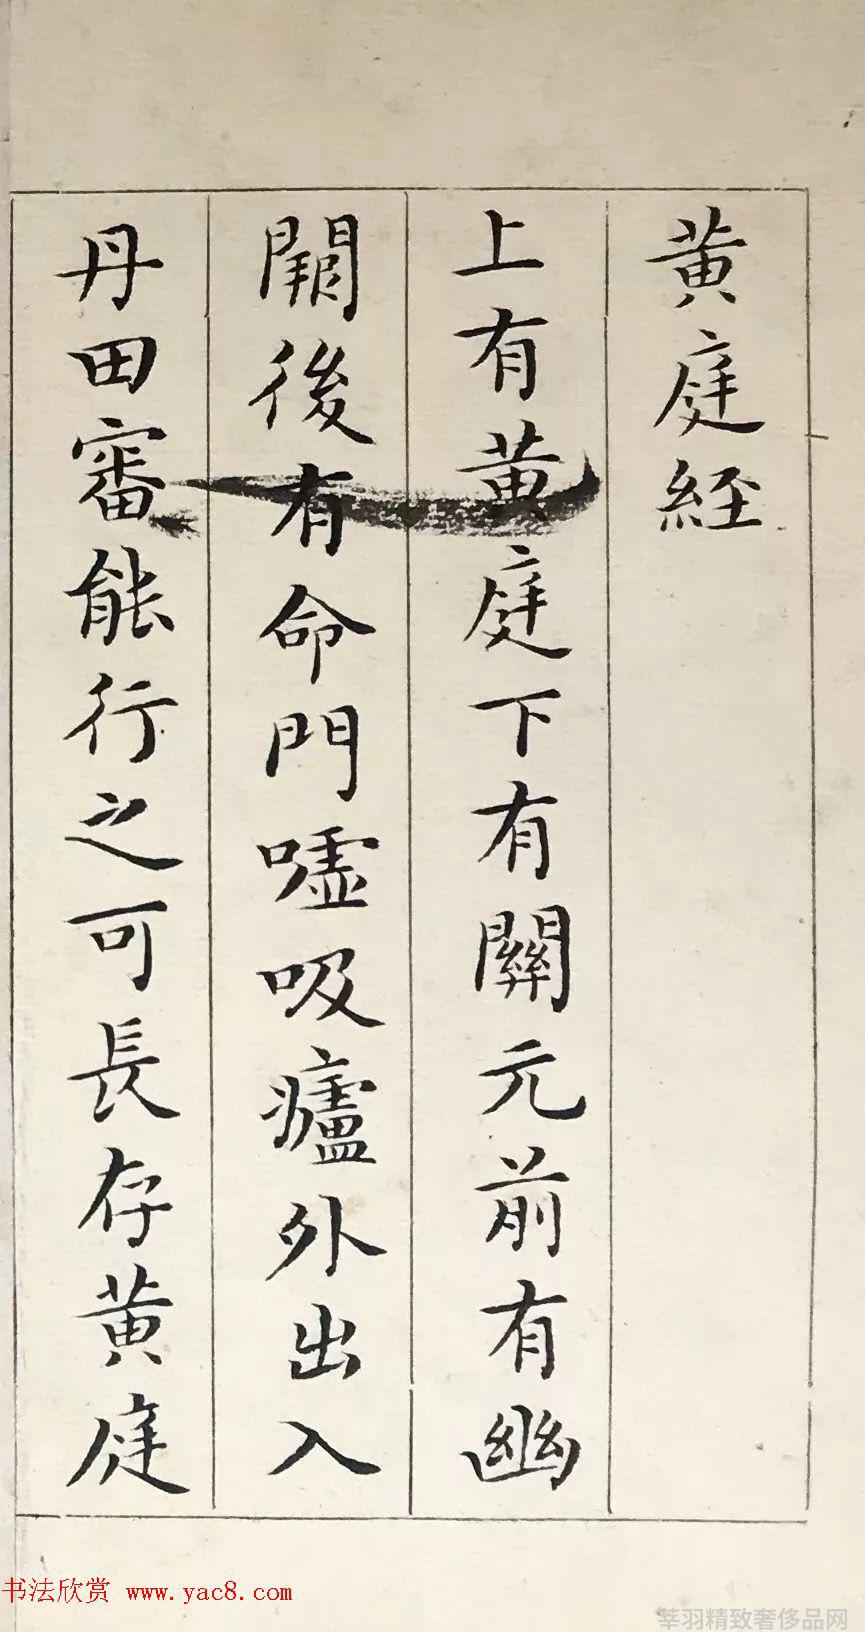 黃庭經
上有黃庭下有關元前有幽
闕後有命門噓吸廬外出入
丹田審能行之可長存黃庭
书法欣赏 www.yac8.com
莘羽精致奢侈品网